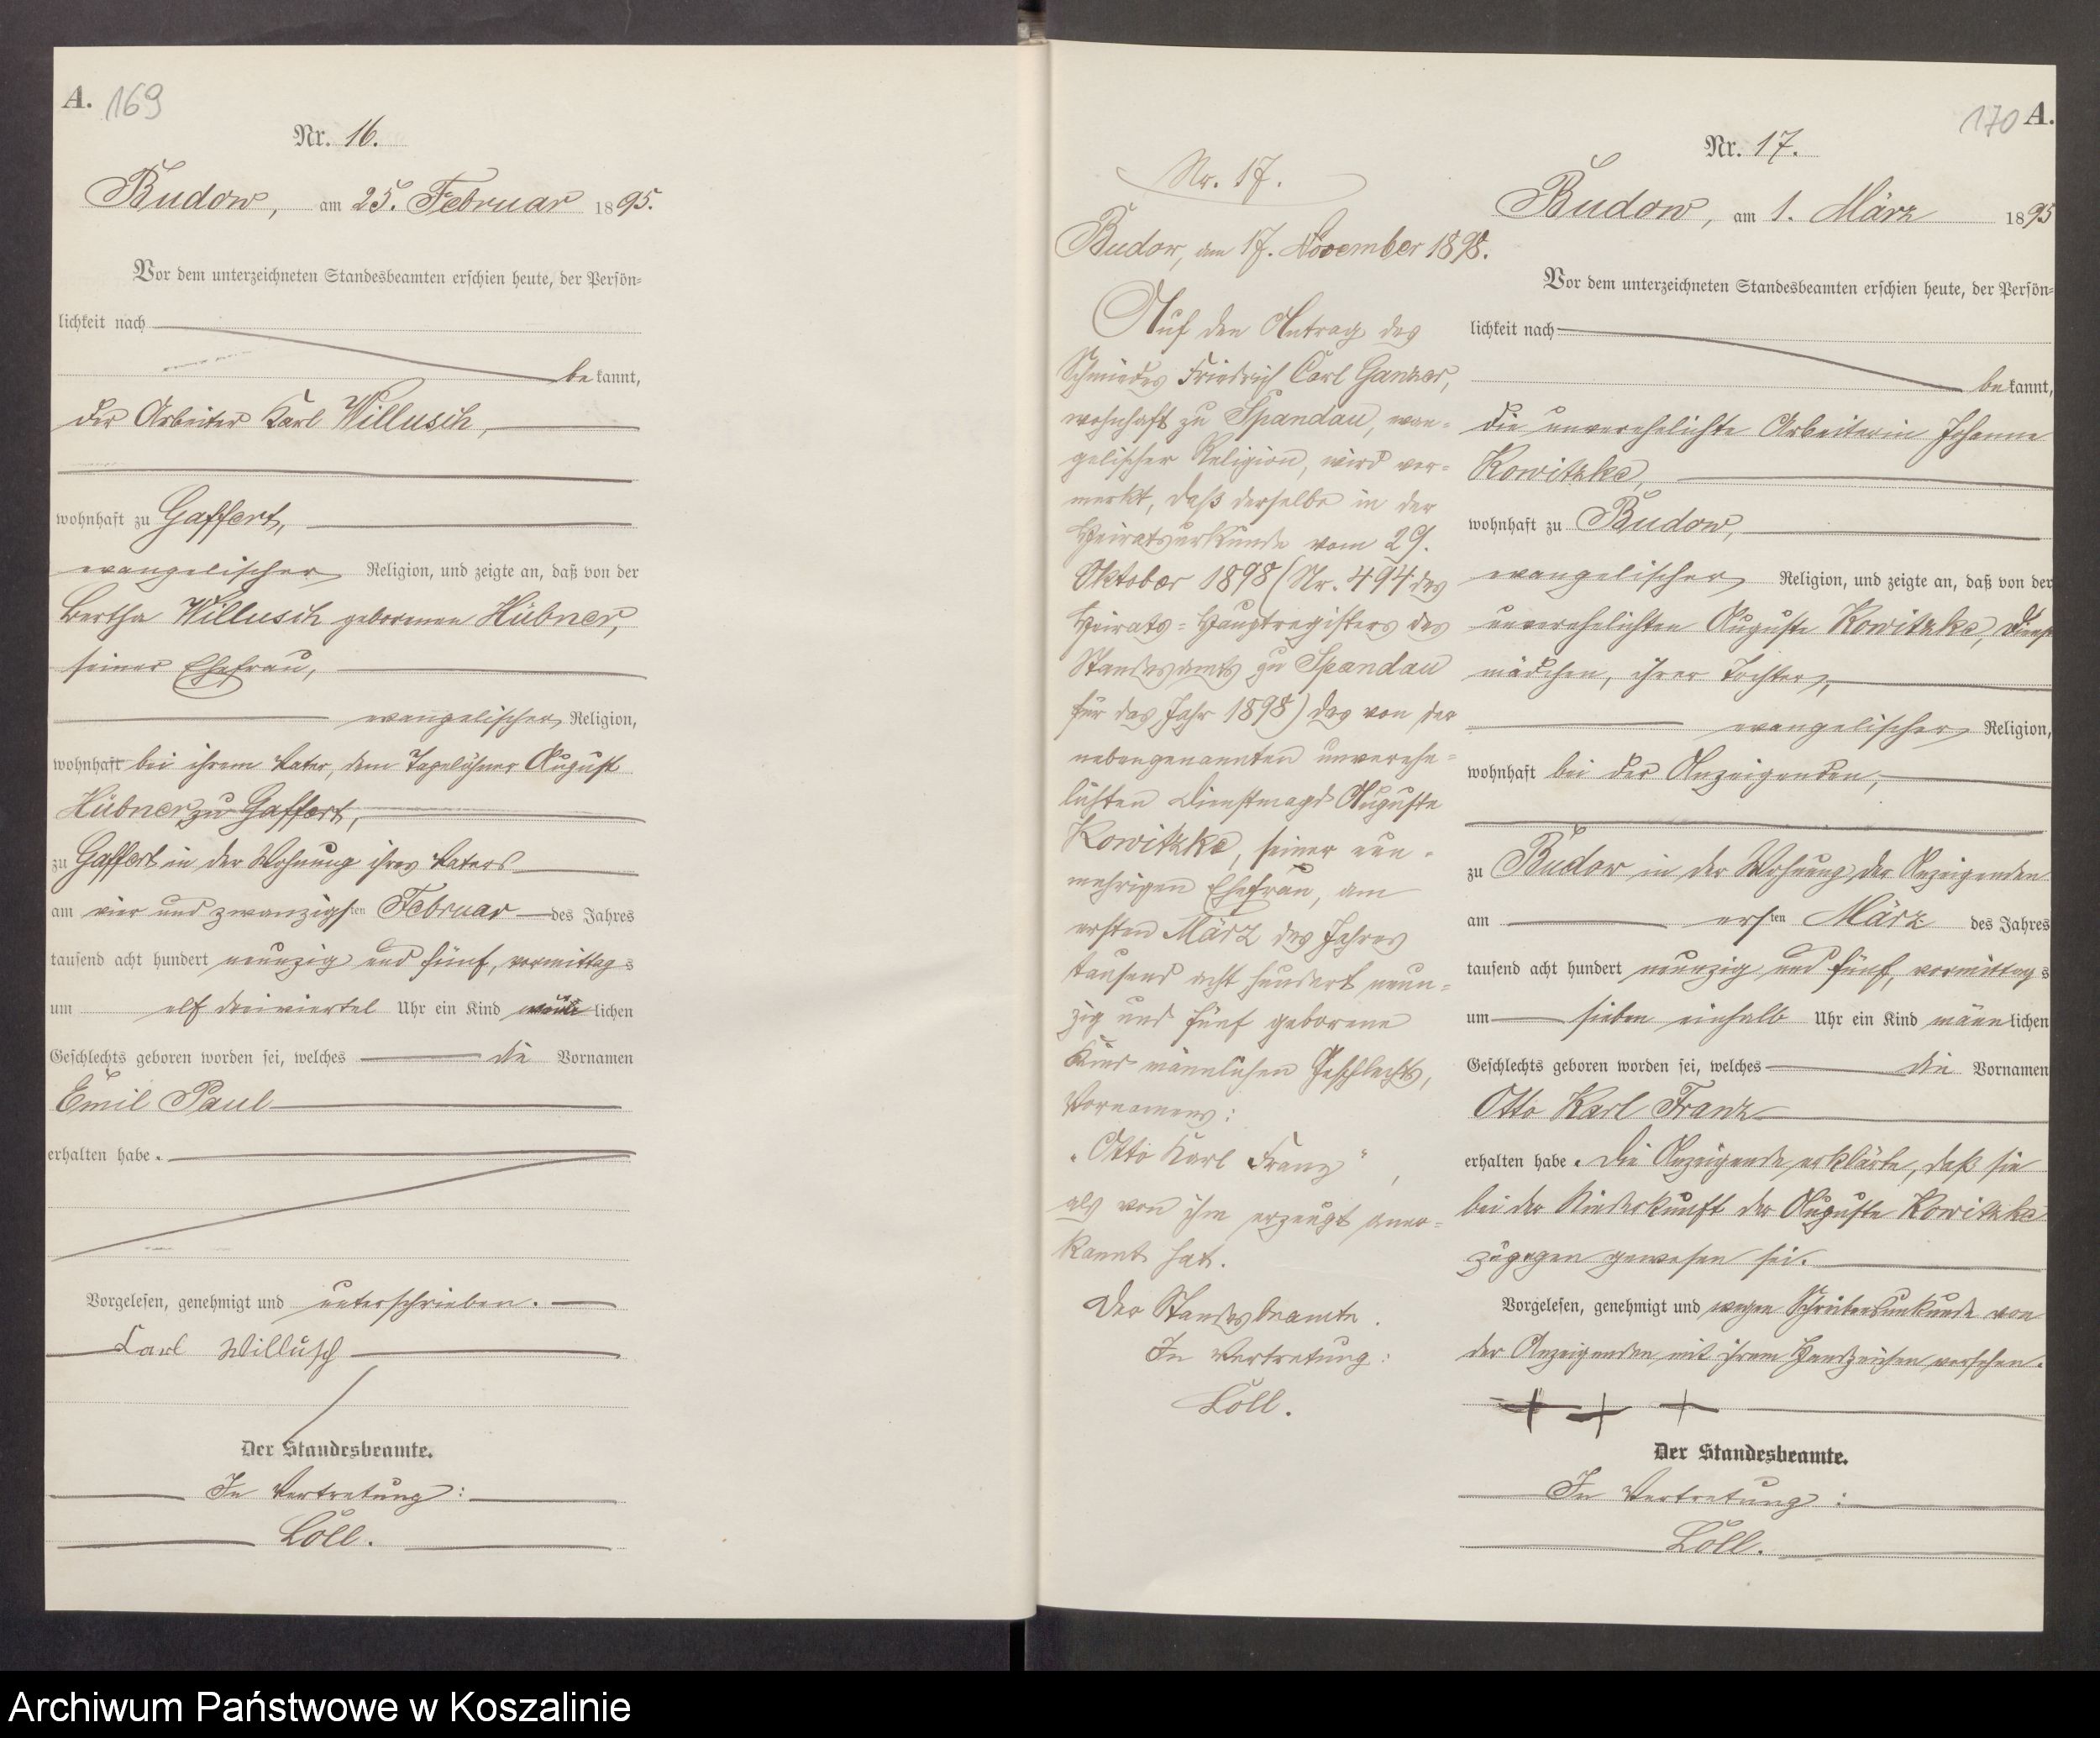 A. 169
Nr. 16.
Budow, am 25. Februar 1895.
Vor dem unterzeichneten Standesbeamten erschien heute, der Persön-
lichkeit nach
be kannt,
der Arbeiter Karl Willusch,
wohnhaft zu Gaffert,
evangelischer Religion, und zeigte an, daß von der
Bertha Willusch geborenen Hübner,
seiner Ehefrau,
evangelischer Religion,
wohnhaft bei ihrem Vater, dem Tagelöhner August
Hübner zu Gaffert,
zu Gaffert in der Wohnung ihres Vaters
am vier und zwanzigsten Februar des Jahres
tausend acht hundert neunzig und fünf, vormittags
um elf dreiviertel Uhr ein Kind lichen
Geschlechts geboren worden sei, welches die Vornamen
Emil Paul
erhalten habe.
Vorgelesen, genehmigt und unterschrieben.
Carl Willusch
Der Standesbeamte.
In Vertretung:
Löll.
170 A.
Nr. 17.
Budow, am 17. November 1898.
Auf den Antrag des
Schmiedes Friedrich Carl Ganzer,
wohnhaft zu Spandau, evan-
gelischer Religion, wird ver-
merkt, daß derselbe in der
Heiratsurkunde vom 29.
Oktober 1898 (Nr. 494 des
Heirats-Hauptregisters des
Standesamts zu Spandau
für das Jahr 1898) das von der
nebengenannten unverehe-
lichten Dienstmagd Auguste
Kowitzke, seiner nun-
mehrigen Ehefrau, am
ersten März des Jahres
tausend acht hundert neun-
zig und fünf geborene
Kind männlichen Geschlechts,
Vornamens:
„Otto Karl Franz“,
als von ihm erzeugt aner-
kannt hat.
Der Standesbeamte.
In Vertretung:
Löll.
Nr. 17.
Budow, am 1. März 1895
Vor dem unterzeichneten Standesbeamten erschien heute, der Persön-
lichkeit nach
be kannt,
die unverehelichte Arbeiterin Johanne
Kowitzke,
wohnhaft zu Budow,
evangelischer Religion, und zeigte an, daß von der
unverehelichten Auguste Kowitzke, Dienst
mädchen, ihrer Tochter,
evangelischer Religion,
wohnhaft bei der Anzeigenden,
zu Budow in der Wohnung der Anzeigenden
am ersten März des Jahres
tausend acht hundert neunzig und fünf, vormittags
um sieben einhalb Uhr ein Kind männlichen
Geschlechts geboren worden sei, welches die Vornamen
Otto Karl Franz
erhalten habe. Die Anzeigende erklärte, daß sie
bei der Niederkunft der Auguste Kowitzke
zugegen gewesen sei.
Vorgelesen, genehmigt und wegen Schreibensunkunde von
der Anzeigenden mit ihrem Handzeichen versehen.
+ + +
Der Standesbeamte.
In Vertretung:
Löll.
Archiwum Państwowe w Koszalinie